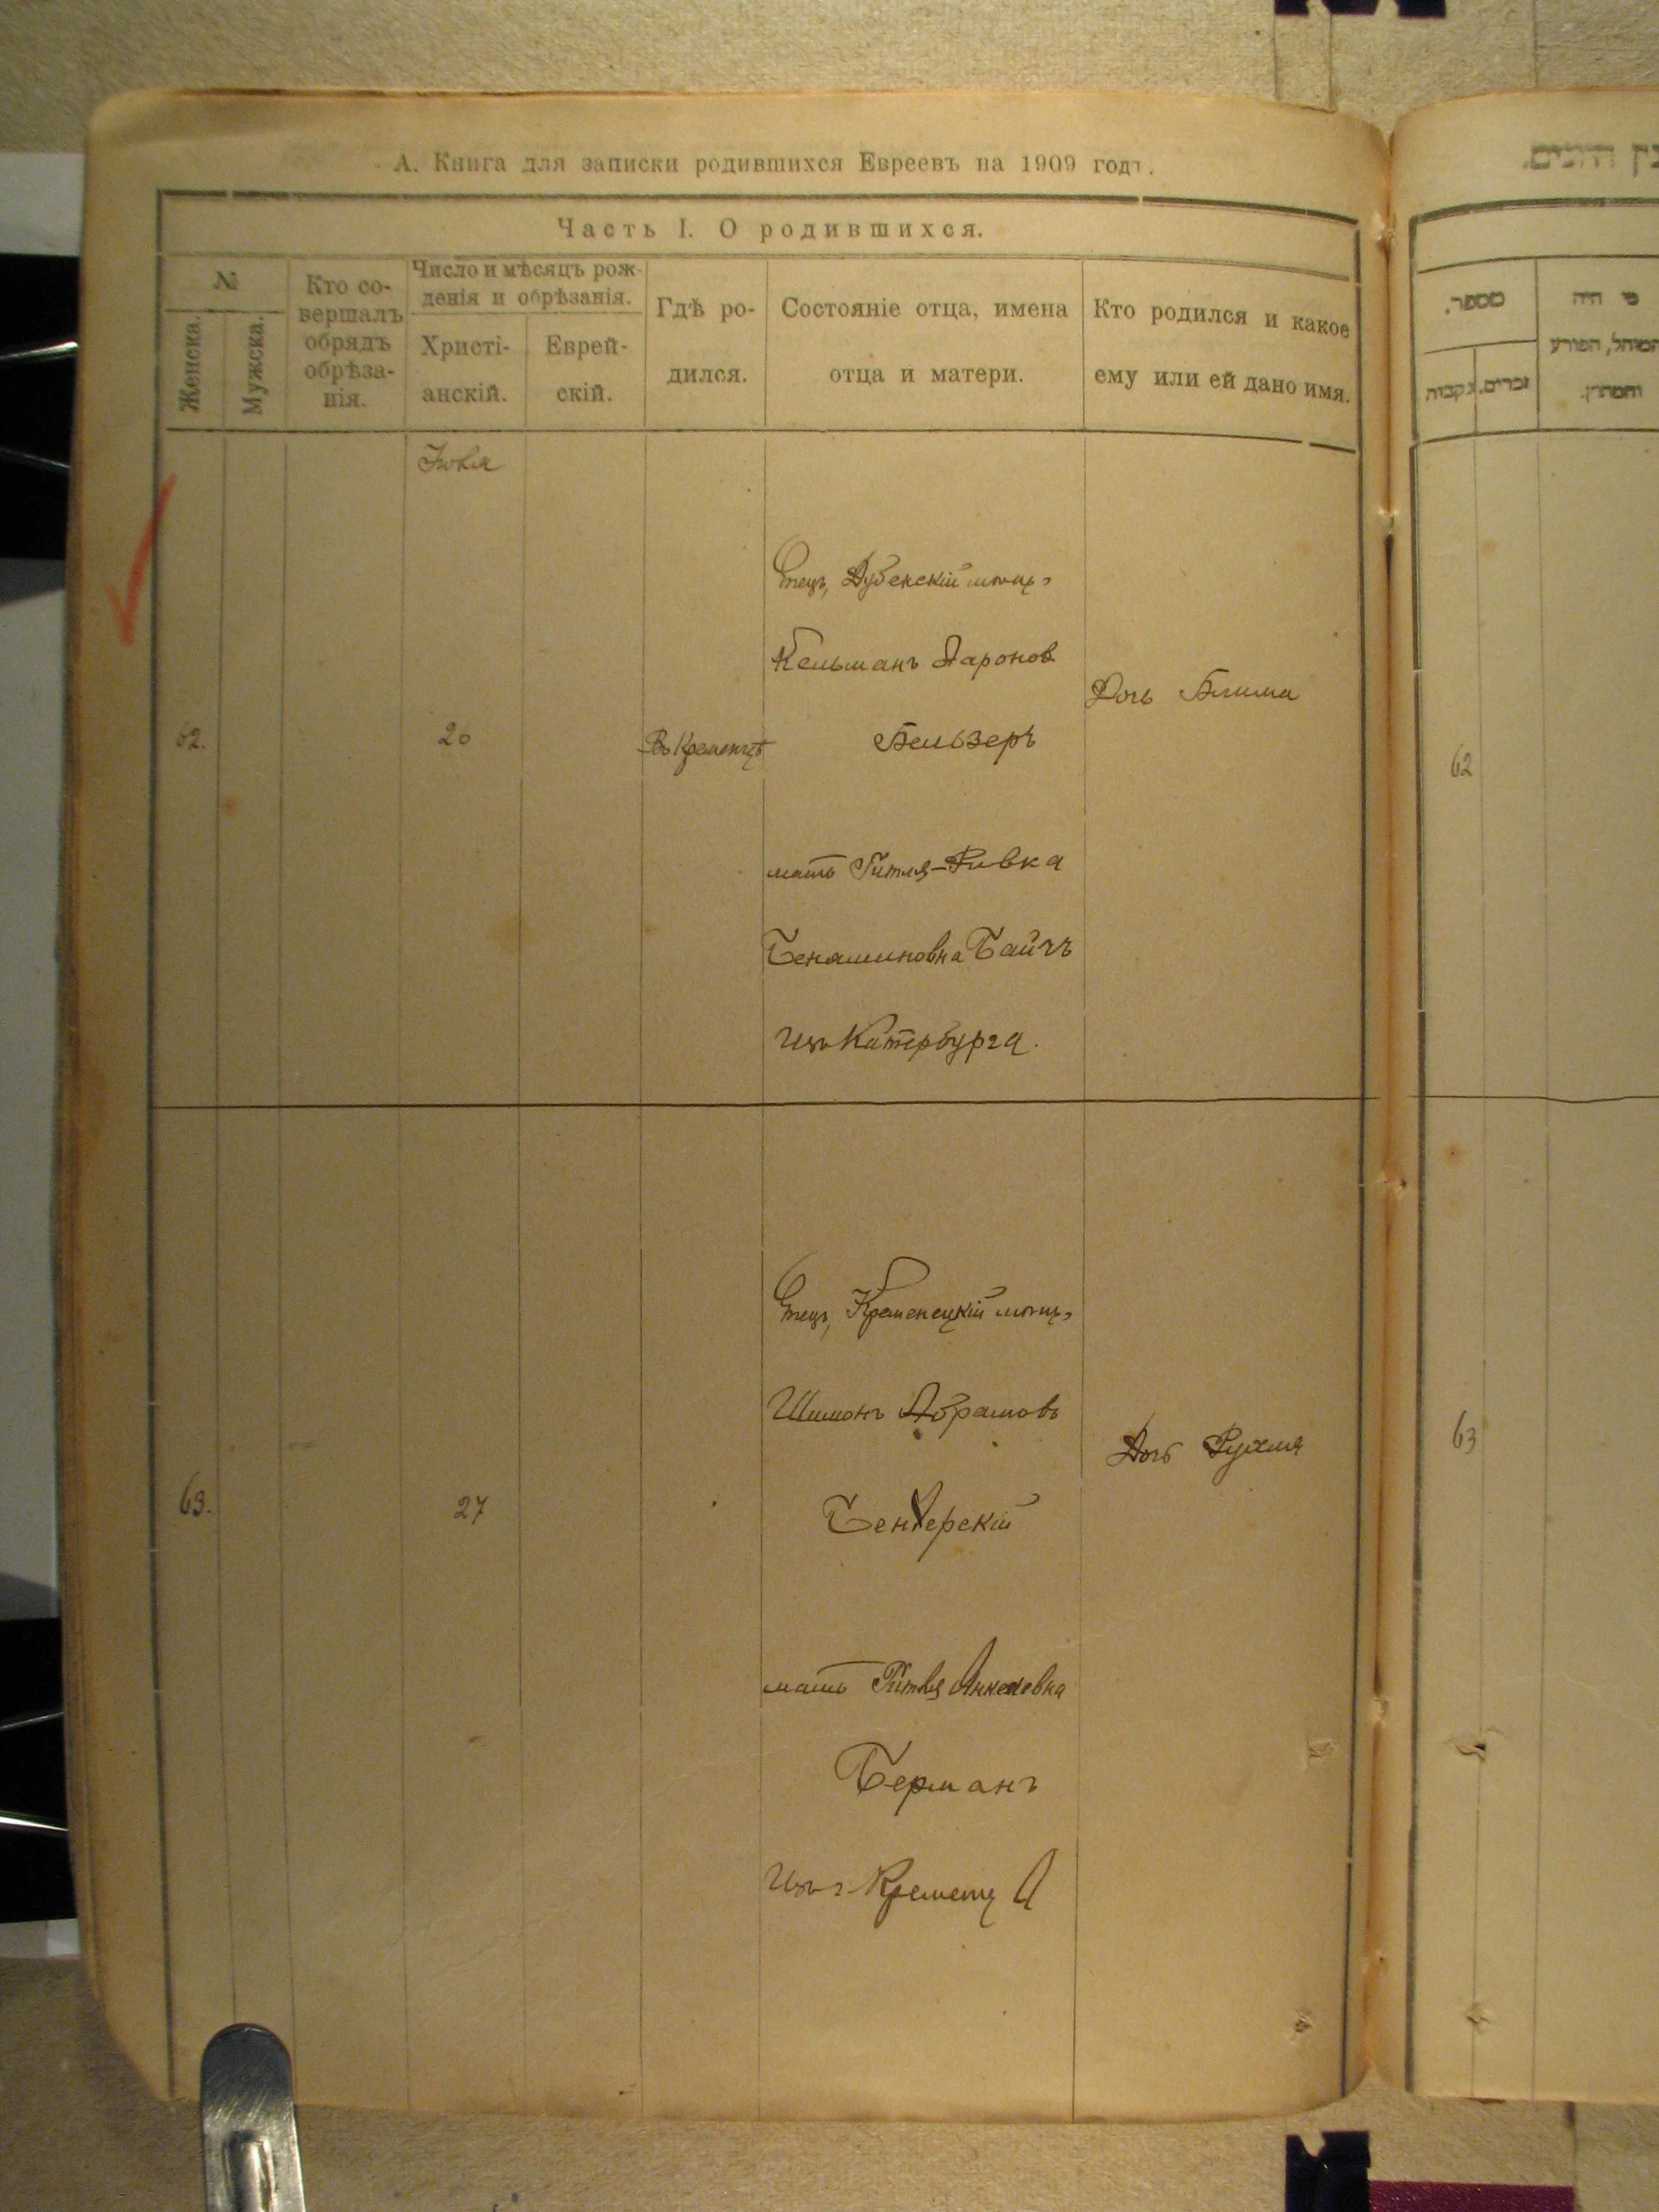 А. Книга для записки родившихся Евреевъ на 1909 годъ.
Часть I. О родившихся.
№
Женска.
Мужска.
Кто со-
вершалъ
обрядъ
обрѣза-
нія.
Число и мѣсяцъ рож-
денія и обрѣзанія.
Христі-
анскій.
Еврей-
скій.
Гдѣ ро-
дился.
Состояніе отца, имена
отца и матери.
Кто родился и какое
ему или ей дано имя.
62.
20
Въ Кременцѣ
Отецъ, Дубенскій мѣщ.
Кельманъ Ааронов
Бельзеръ
мать Гитля-Ривка
Беняминовна Байчъ
Изъ Катербурга.
Дочь Блима
63.
27
Отецъ, Кременецкій мѣщ.
Шимонъ Абрамовъ
Бендерскій
мать Гитля Янкелевна
Берманъ
Изъ г. Кременц
Дочь Рухля
מספר.
זכרים.
נקבות
מי היה
המוהל, הפורע
והמוצץ.
62
63